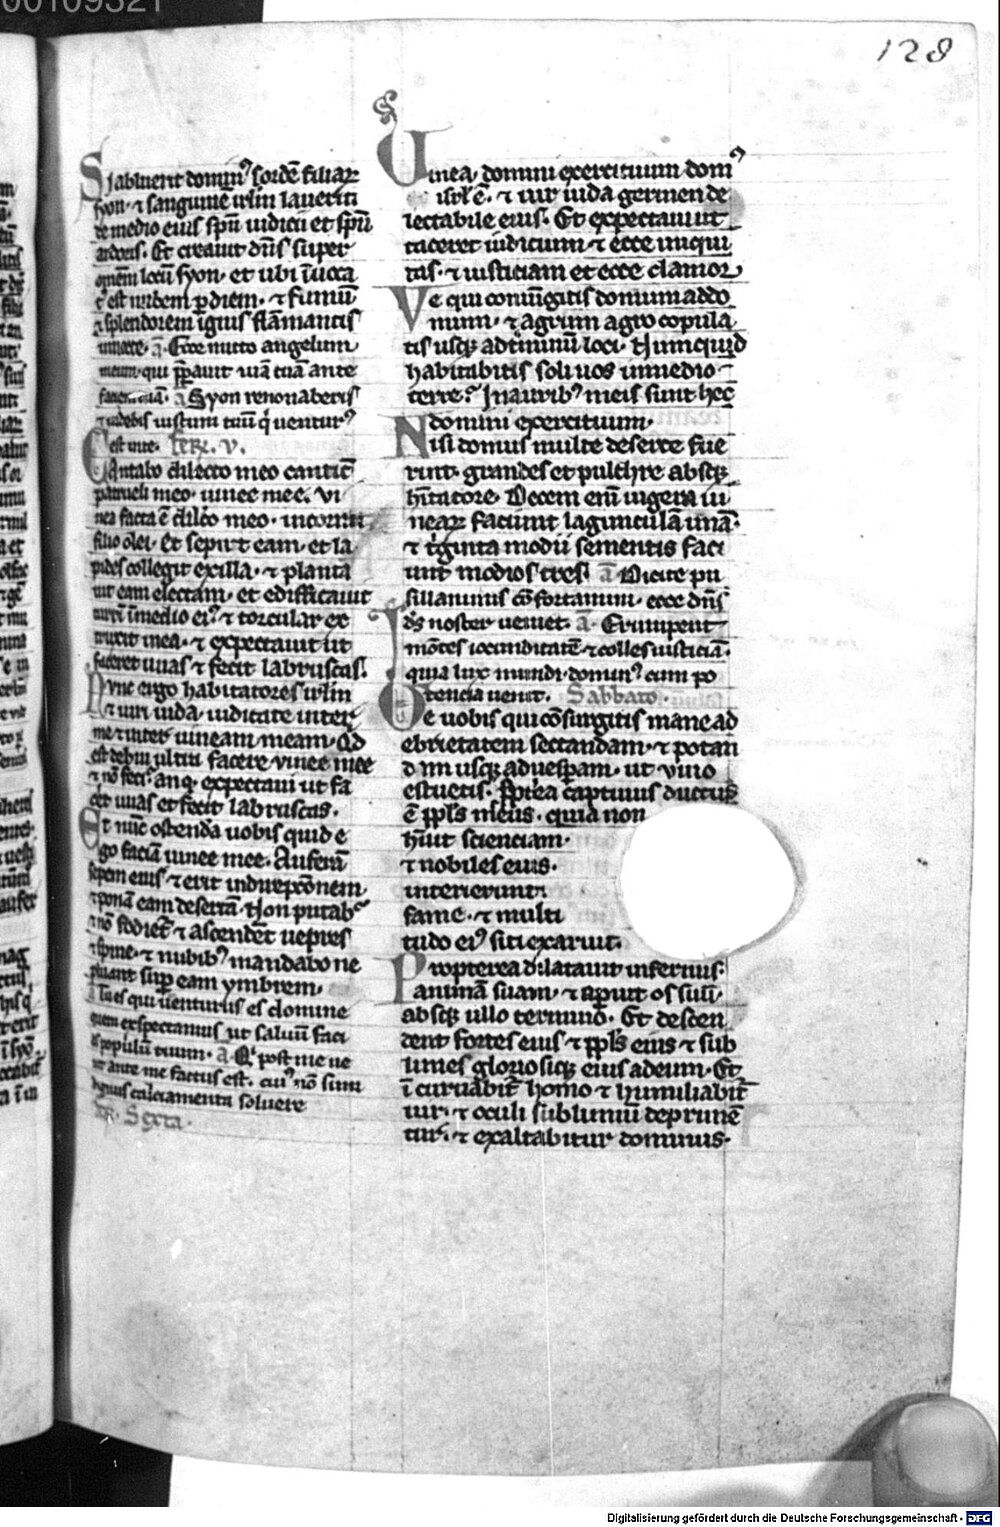 00109321
128
Si abluerit domin⁹ sordē filiaꝝ
syon· ⁊ sanguinē irl̄m lauerit i
re medio eius sp̄u iudicii et sp̄u
ardoris. Et creauit dn̄s super
om̄em locū syon· et ubi īuoca
t᷒ est nubem p̄ diem· ⁊ fumū
⁊ splendorem ignis flāmantis
in nocte· a̅· Ecce mitto angelum
meum· qui p̄parauit uiā tuā ante
faciem tuā· a̅ Syon renouaberis
⁊ uidebis iustum tuū q̇ uentur⁹
est in te· fer̄· v·
Cantabo dilecto meo canticū
patrueli meo· uinee mee· Vi
nea facta ē dilc̄o meo· in cornu
filio olei· Et sepiuit eam· et la
pides collegit ex illa· ⁊ planta
uit eam electam· et edifficauit
turrī ī medio ei⁹· ⁊ torcular ex
truxit in ea· ⁊ expectauit ut
faceret uuas ⁊ fecit labruscas.
Nunc ergo habitatores irl̄m
⁊ uiri iuda· iudicate inter
me ⁊ inter uineam meam· Qd̄
est debui ultra facere uinee mee
⁊ nō feci· an q̇· expectaui ut fa
cēt uuas et fecit labruscas·
Et nūc ostendā uobis quid e
go faciā uinee mee· Auferā
sepem eius ⁊ erit in direpcōnem·
⁊ ponā eam desertā· Non putab᷒
⁊ nō fodiet᷒ ⁊ ascendēt uepres
⁊ spine· ⁊ nubib⁹ mandabo ne
pluant sup̄ eam ymbrem·
a̅ Tu es qui uenturus es domine
quem exspectamus ut saluū faci
as populū tuum· a̅· Q̇ post me ue
nit ante me factus est· cui⁹ nō sum
dignus calciamenta soluere
fer̄· Sexta·
Uinea· domini exercituum dom⁹
isrl̄ ē· ⁊ uir iuda germen de
lectabile eius· Et expectaui ut
faceret iudicium· ⁊ ecce iniqui
tas· ⁊ iusticiam et ecce clamor
Ve qui coniūgitis domum ad do
mum· ⁊ agrum agro copula
tis usq̨ ad t̄minū loci· Nunquid
habitabitis soli uos in medio
terre? In aurib⁹ meis sunt hec
domini exercituum·
Nisi domus multe deserte fue
rint· grandes et pulchre absq̨
hītatore· Decem enī iugera ui
nearꝝ facient lagunculā unā·
⁊ t̄ginta modii sementis faci
unt modios tres· a̅ Dicite pu
sillanimis cōfortamini· ecce dn̄s
d̄s noster ueniet· a̅· Erumpent
mōtes iocunditatē ⁊ colles iusticiā·
quia lux mundi domin⁹ cum po
tencia uenit· Sabbato·
Ve uobis qui cōsurgitis mane ad
ebrietatem sectandam· ⁊ potan
dum usq̨ ad uesp̄am· ut uino
estuetis· p̄pterea captiuus ductus
ē pp̄ls meus· quia non
hūit scienciam·
⁊ nobiles eius·
interierunt
fame· ⁊ multi
tudo ei⁹ siti exaruit·
Propterea dilatauit infernus·
animā suam· ⁊ apuit os suū·
absq̨ ullo termino· Et descen
dent fortes eius ⁊ pp̄ls eius ⁊ sub
limes gloriosiq̨ eius ad eum· Et
īcuruabit᷒ homo ⁊ humiliabit᷒
uir· ⁊ oculi sublimiū deprimē
tur· ⁊ exaltabitur dominus·
Digitalisierung gefördert durch die Deutsche Forschungsgemeinschaft · DFG